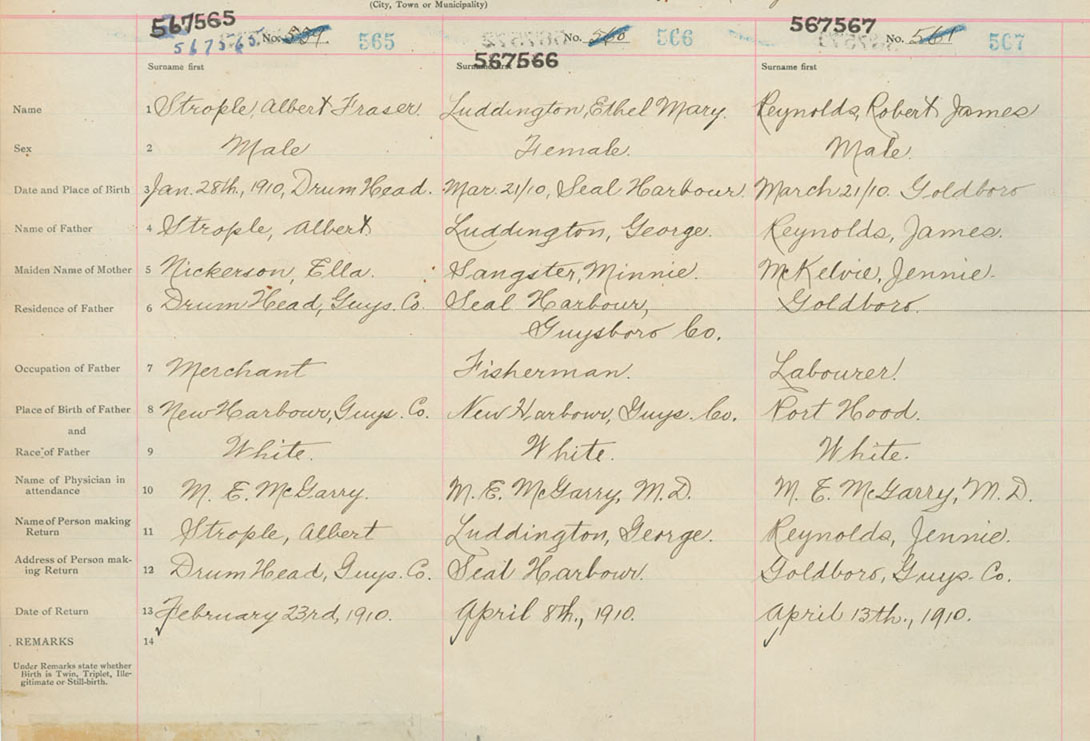 (City, Town or Municipality)
567565 567567
567565. No. 565 No. 560 566 No. 561 567
567566
Surname first Surname first Surname first
Name 1 Strople, Albert Fraser. Luddington, Ethel Mary. Reynolds, Robert James
Sex 2 Male Female. Male.
Date and Place of Birth 3 Jan. 28th, 1910, Drum Head. Mar. 21/10, Seal Harbour. March 21/10. Goldboro
Name of Father 4 Strople, Albert Luddington, George. Reynolds, James.
Maiden Name of Mother 5 Nickerson, Ella. Sangster, Minnie. McKelvie, Jennie.
Residence of Father 6 Drum Head, Guys. Co. Seal Harbour, Goldboro.
Guysboro Co.
Occupation of Father 7 Merchant Fisherman. Labourer.
Place of Birth of Father 8 New Harbour, Guys. Co. New Harbour, Guys. Co. Port Hood.
and
Race of Father 9 White. White. White.
Name of Physician in
attendance 10 M. E. McGarry. M. E. McGarry, M.D. M. E. McGarry, M.D.
Name of Person making
Return 11 Strople, Albert Luddington, George. Reynolds, Jennie.
Address of Person mak-
ing Return 12 Drum Head, Guys. Co. Seal Harbour. Goldboro, Guys. Co.
Date of Return 13 February 23rd, 1910. April 8th., 1910. April 13th., 1910.
REMARKS 14
Under Remarks state whether
Birth is Twin, Triplet, Ille-
gitimate or Still-birth.